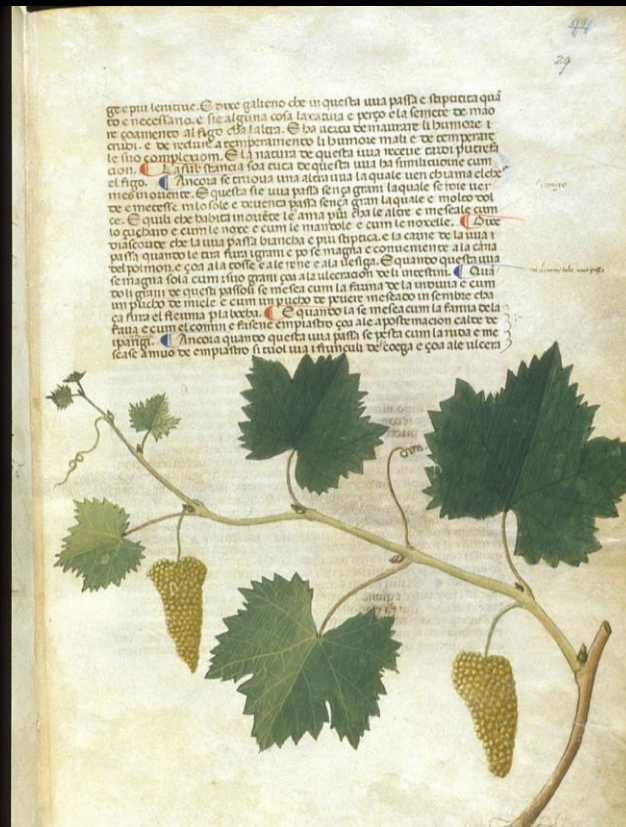 29
ge e piu lenitiue. E dixe galieno che in questa uua passa e stipticita quā
to e necessario. e sie alguna cosa laxatiua e perço ela semete de mao
re coamento al figo cha laltra. E ha uertu de maurare li humore i
crudi. e de redure a temperamento li humore mali e de temperare
le suo complexiom. E la natura de questa uua receue tardi putrefa
cion. ¶ La sub stancia soa tuta de questa uua ha similitudine cum
el figo. ¶ Ancora se truoua una altra uua la quale uen chiama
in oriente. E questa sie uua passa sença gram laquale se
de e mecesse in lo sole e deuenta passa sença gram laquale e molto dol
ce. E quili che habita in oriēte le ama piu cha le altre e mescale cum
lo çucharo e cum le noxe e cum le mandole e cum le noxelle. ¶ Dixe
diascoride che la uua passa biancha e piu stiptica. e la carne de la uua
passa quando le tira fura i grani e po se magna e conueniente a la cāna
del polmon. e ço a a la tosse e a le rene e a la uesiga. E quando questa uua
se magna sola cum i suo grani ço a a la ulceracion deli intestini. ¶ Quā
do li grani de questi passoli se mesea cum la farina de la e cum
un pucho de miele e cum un pucho de peuere meseado in sembre cha
ça fura el fleuma p la bocha. ¶ E quando la se mesea cum la farina dela
faua e cum el comin e fasene empiastro ço a ale apostemacion calde de
¶ Ancora quando questa uua passa se pesta cum la ruda e me
sease a muo de empiastro si tuol uia i frunculi de e ço a ale ulcera